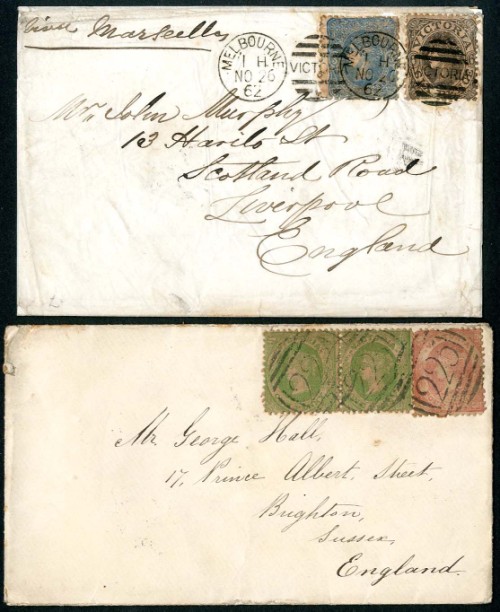 Marseilles
MELBOURNE
1 H
NO 26
62
VICTORIA
MELBOURNE
1 H
NO 26
62
VICTORIA
VICTORIA
Mr John Murphy
13 St
Scotland Road
Liverpool
England
225
Mr George Hall,
17, Prince Albert Street,
Brighton,
Sussex,
England.